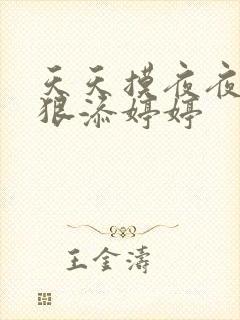 天天摸夜夜
狠添婷婷
王金涛